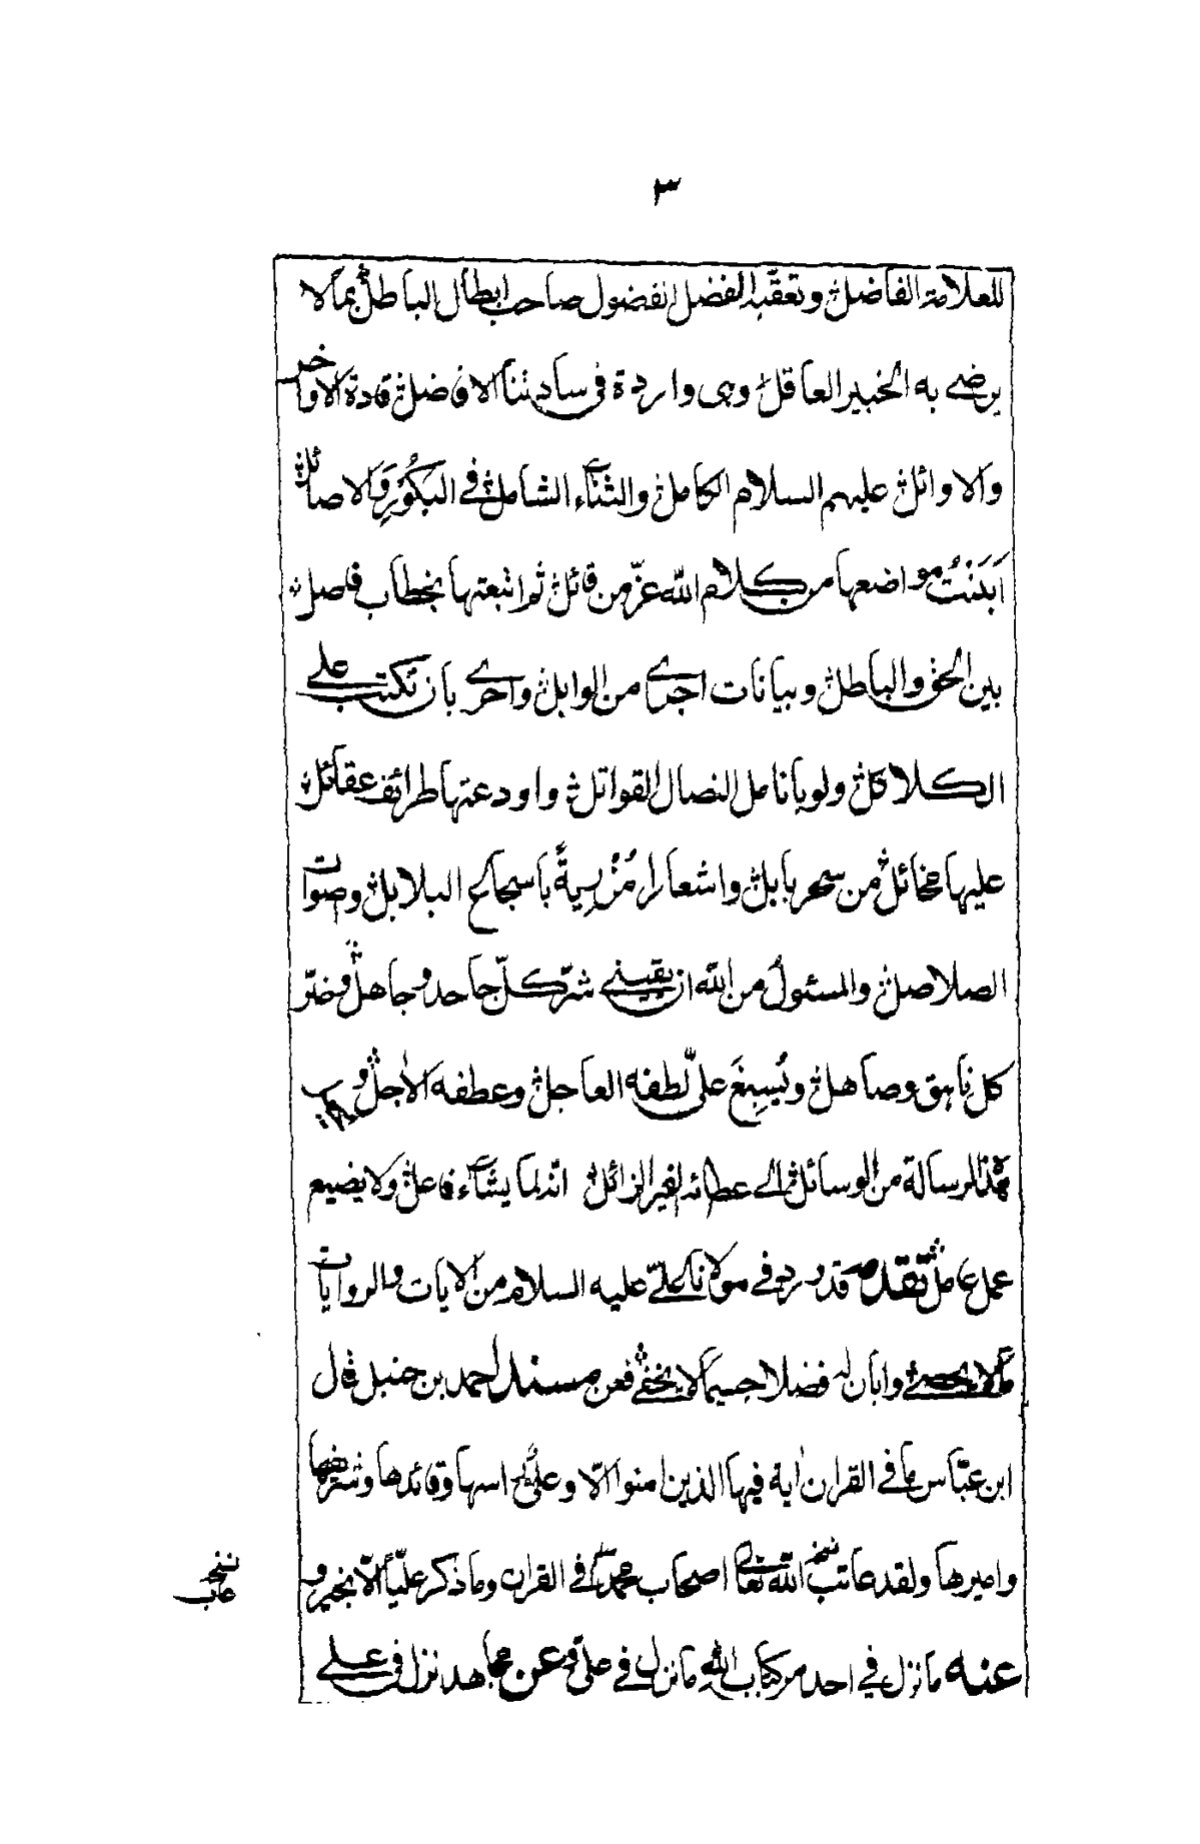 ٣
للعلامة الفاضل وتعقبه الفضل الفضول صاحب ابطال الباطل بما لا
يرضى به الخبير العاقل وهى واردة فى ساداتنا الافاضل قادة الاواخر
والاوائل عليهم السلام الكامل والثناء الشامل في البكور والاصائل
اَبَنْتُ مواضعها من كلام الله عزّ من قائل ثم اتبعتها بخطاب فاصل
بين الحق والباطل وبيانات اجرى من الوابل واحرى بان تكتب على
الكلاكل ولو بانامل النصال القواتل واودعتها طرائف عقائل
عليها مخائل من سحر بابل واشعار مُزْرِيةً باسجاع البلابل وصوات
الصلاصل والمسئول من الله ان يقينى شرّ كلّ جاحد وجاهل وضرّ
كل ناهق وصاهل ويُسبِغَ علىّ لطفه العاجل وعطفه الاٰجل و
هذه الرسالة من الوسائل الى عطائه الغير الزائل انه لما يشاء فاعل ولا يضيع
عمل عامل تقدمة قد ورد في مولانا علىّ عليه السلام من الايات والروايات
مالا يحصى وابان له فضلا جسيما لا يخفى فعن مسند احمد بن حنبل قال
ابن عبّاس ما في القران اية فيها الذين امنوا الّا وعلىّ راسها وقائدها وشريفها
واميرها ولقد عاتب الله تعالى اصحاب محمد في القران وما ذكر عليّاً الّا بخير و
عنه ما نزل في احد من كتاب الله ما نزل في علىّ وعن مجاهد نزل فى على
عاتب